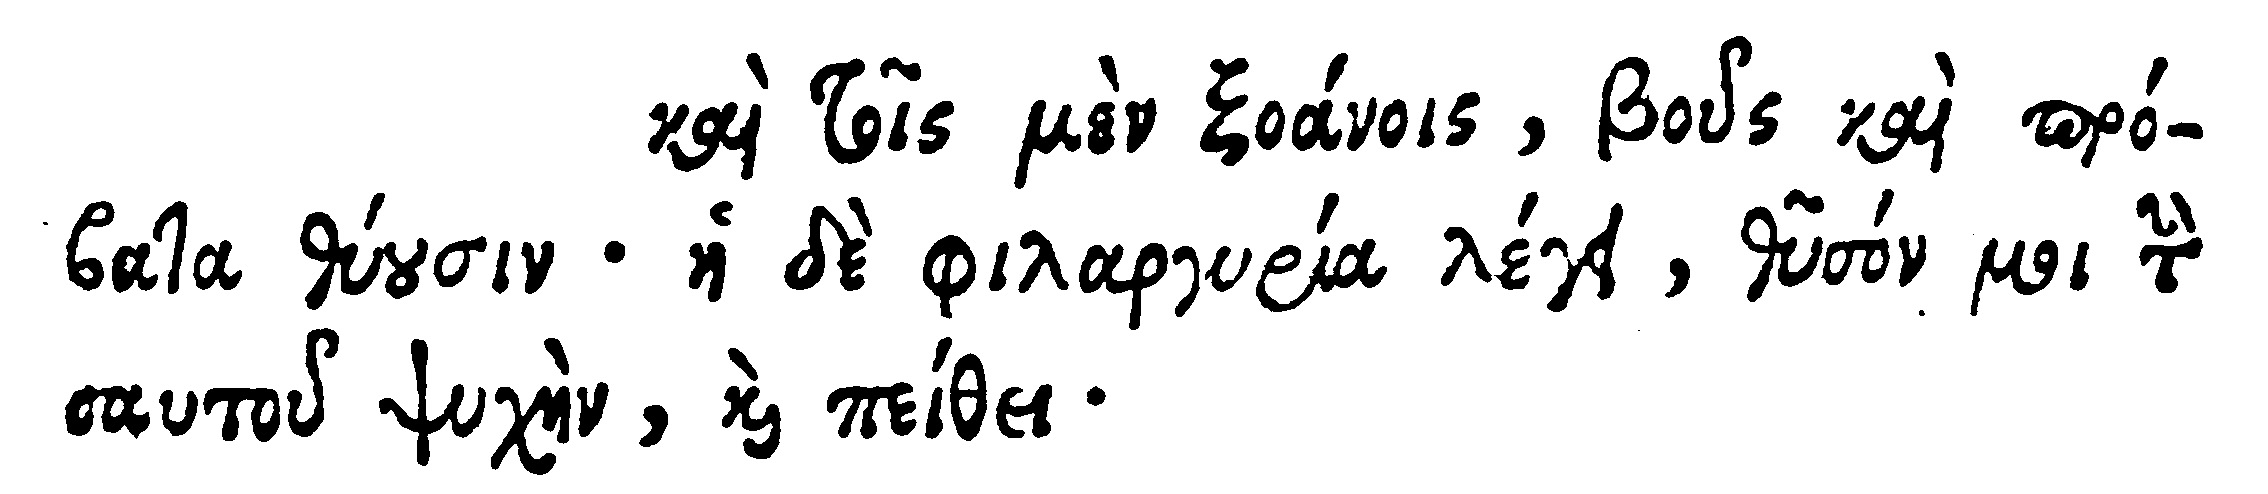 καὶ τοῖς μὲν ξοάνοις, βοῦς καὶ πρό-
βατα θύουσιν· ἡ δὲ φιλαργυρία λέγει, θῦσόν μοι τὴν
σαυτοῦ ψυχὴν, καὶ πείθει·